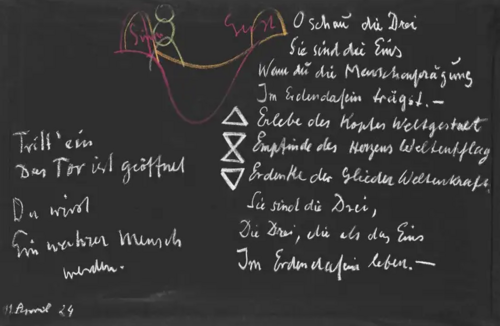 Sinn
Geist
O schau die Drei
Sie sind die Eins
Wenn du die Menschenprägung
Im Erdendasein trägst. —
Erlebe des Kopfes Weltgestalt
Empfinde des Herzens Weltenschlag
Erdenke der Glieder Weltenkraft
Sie sind die Drei,
Die Drei, die als das Eins
Im Erdendasein leben. —
Tritt ein
Das Tor ist geöffnet
Du wirst
Ein wahrer Mensch
werden.
24